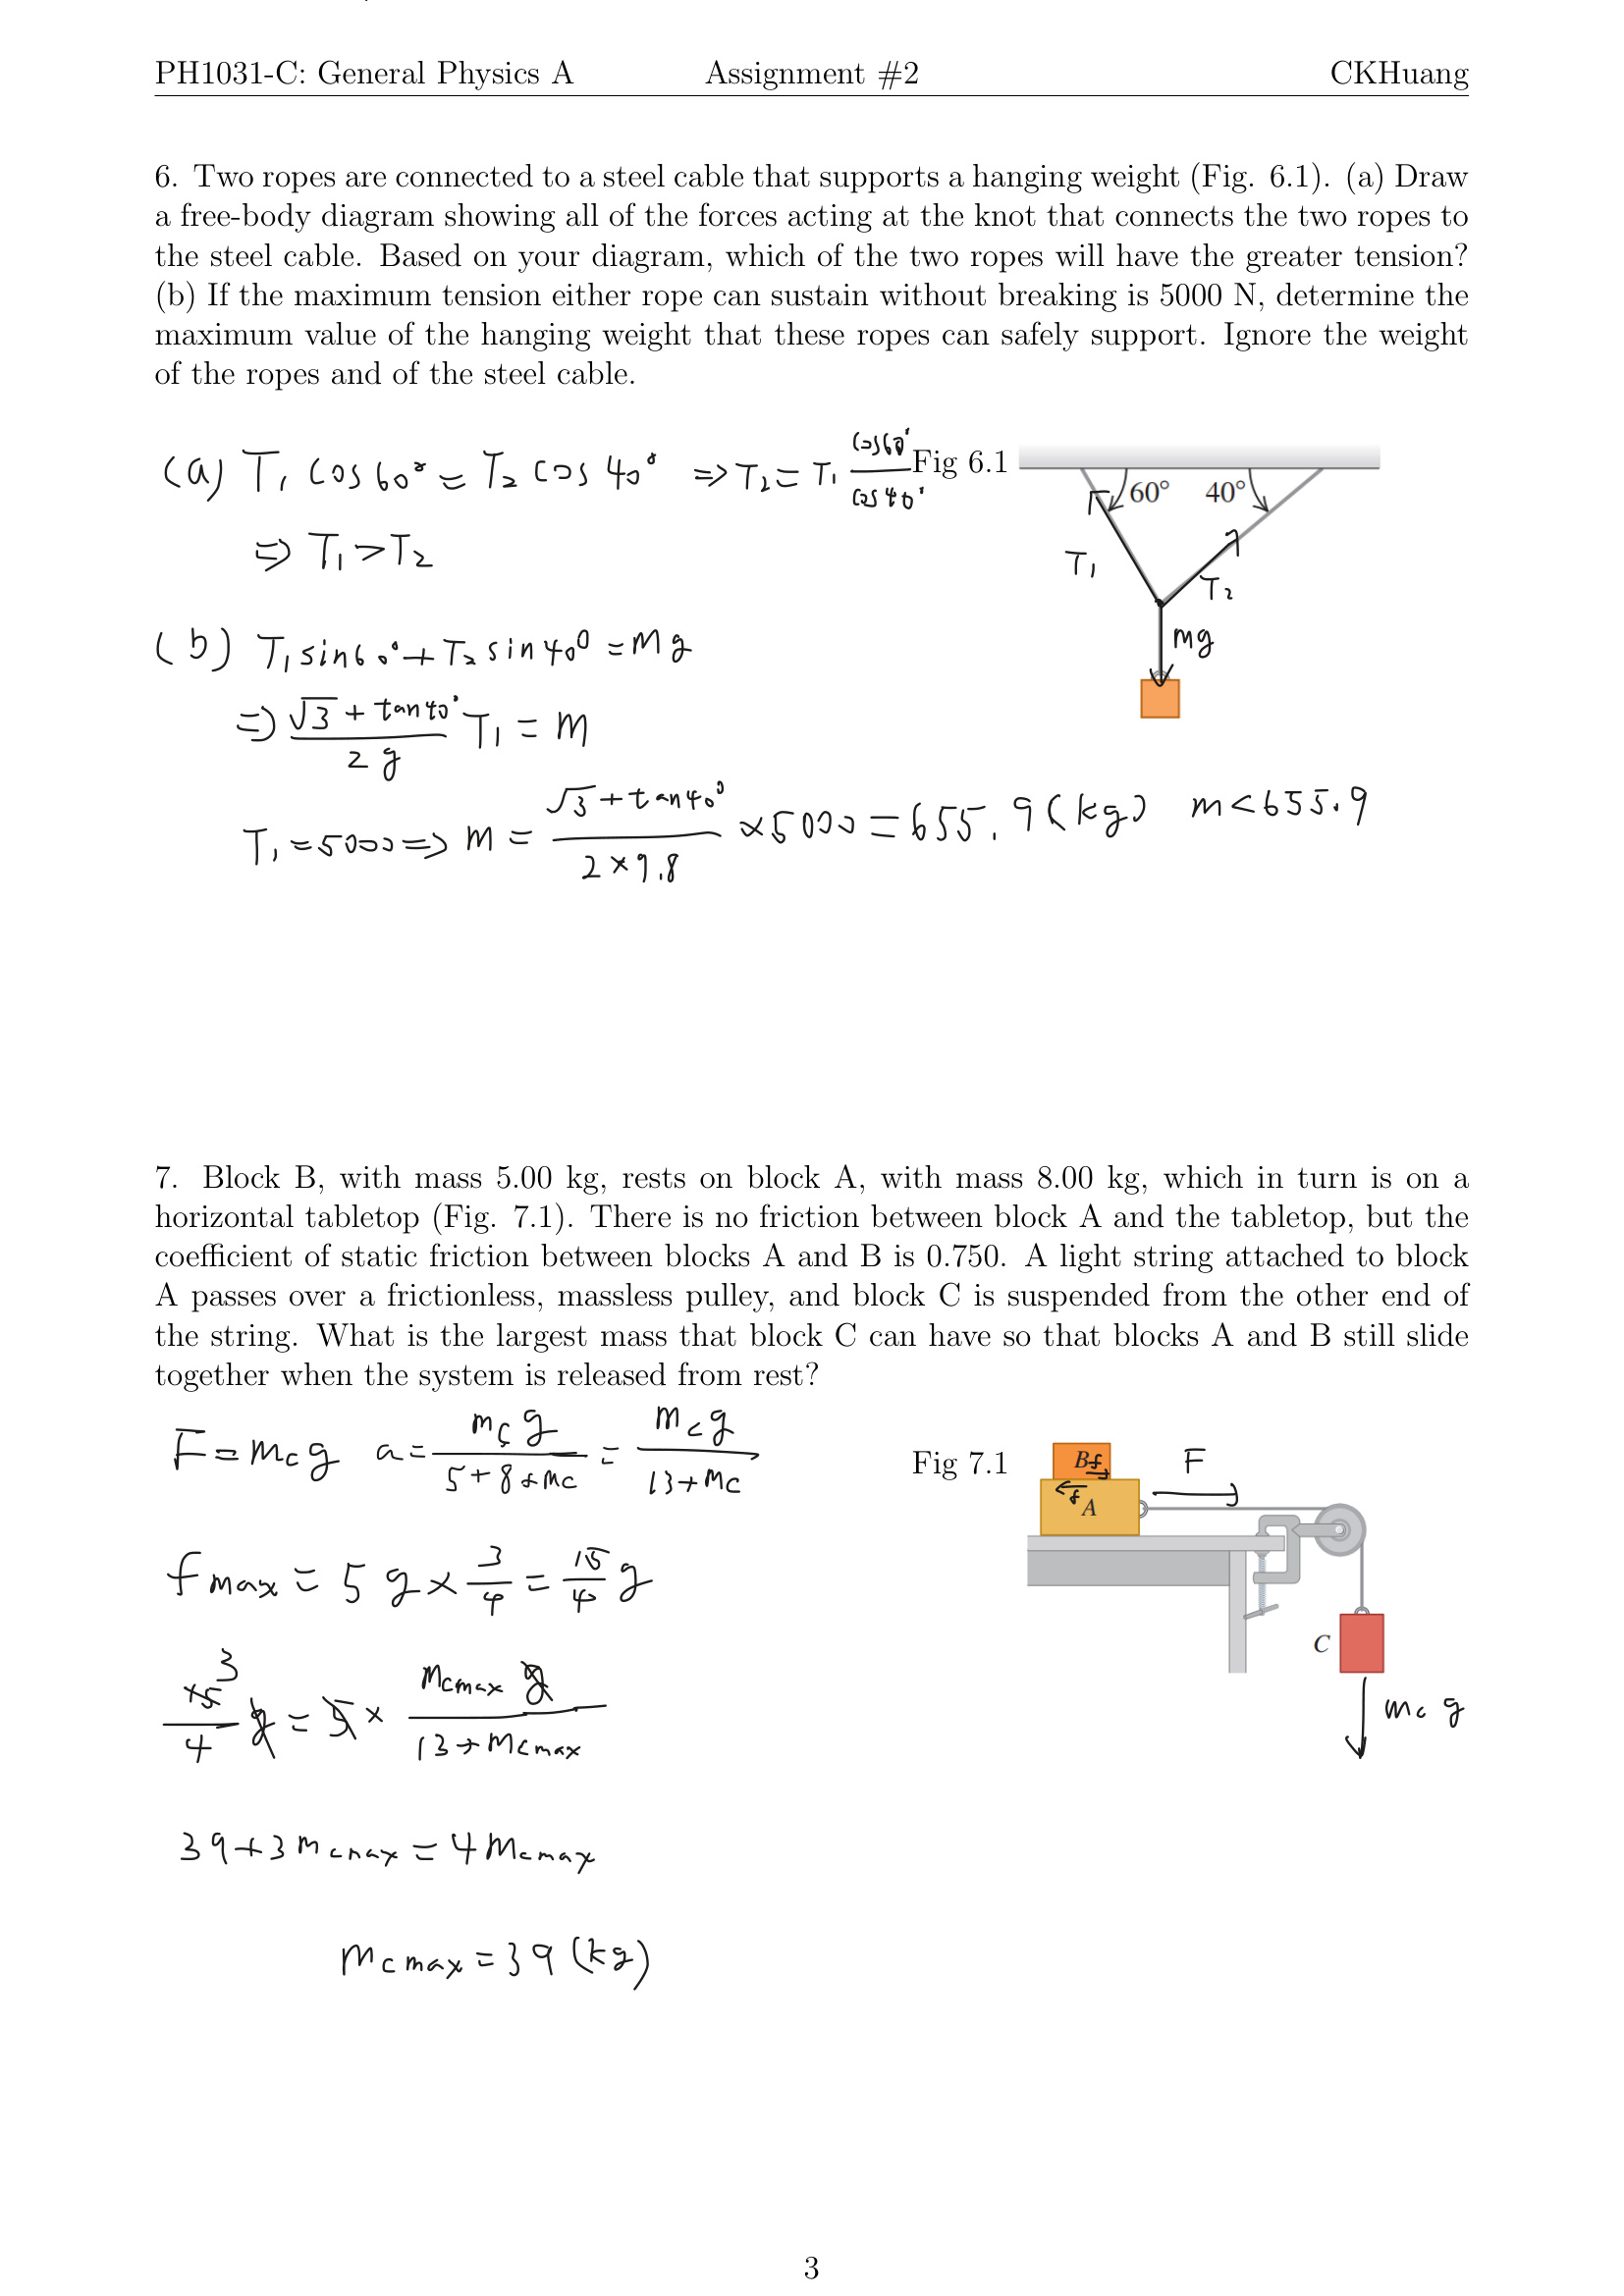 PH1031-C: General Physics A Assignment #2 CKHuang
6. Two ropes are connected to a steel cable that supports a hanging weight (Fig. 6.1). (a) Draw
a free-body diagram showing all of the forces acting at the knot that connects the two ropes to
the steel cable. Based on your diagram, which of the two ropes will have the greater tension?
(b) If the maximum tension either rope can sustain without breaking is 5000 N, determine the
maximum value of the hanging weight that these ropes can safely support. Ignore the weight
of the ropes and of the steel cable.
(a) T₁ cos60° = T₂ cos40° ⇒ T₂ = T₁ cos60°/cos40°
⇒ T₁ > T₂
Fig 6.1
60° 40°
T₁
T₂
mg
(b) T₁ sin60° + T₂ sin40° = Mg
⇒ (√3 + tan40°)/(2g) T₁ = m
T₁ = 5000 ⇒ m = (√3 + tan40°)/(2×9.8) ×5000 = 655.9(kg) m<655.9
7. Block B, with mass 5.00 kg, rests on block A, with mass 8.00 kg, which in turn is on a
horizontal tabletop (Fig. 7.1). There is no friction between block A and the tabletop, but the
coefficient of static friction between blocks A and B is 0.750. A light string attached to block
A passes over a frictionless, massless pulley, and block C is suspended from the other end of
the string. What is the largest mass that block C can have so that blocks A and B still slide
together when the system is released from rest?
F = mcg a = mcg/(5+8+mc) = mcg/(13+mc)
Fig 7.1
B f
F
f A
C
mcg
fmax = 5g × 3/4 = 15/4 g
15 3/4 g = 5 × mcmax g/(13+mcmax)
39+3mcmax = 4mcmax
mcmax = 39 (kg)
3